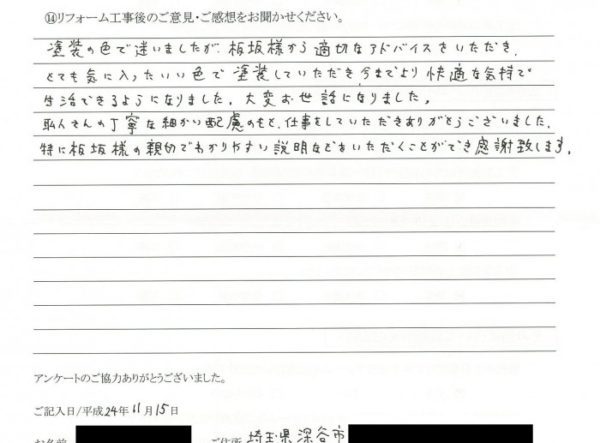 ⑭リフォーム工事後のご意見・ご感想をお聞かせください。
塗装の色で迷いましたが、板坂様から適切なアドバイスをいただき、
とても気に入ったいい色で塗装していただき今までより快適な気持で
生活できるようになりました。大変お世話になりました。
職人さんの丁寧な細かい配慮のもと、仕事をしていただきありがとうございました。
特に板坂様の親切でわかりやすい説明などをいただくことができ感謝致します。
アンケートのご協力ありがとうございました。
ご記入日/平成24年11月15日
お名前 ご住所 埼玉県深谷市